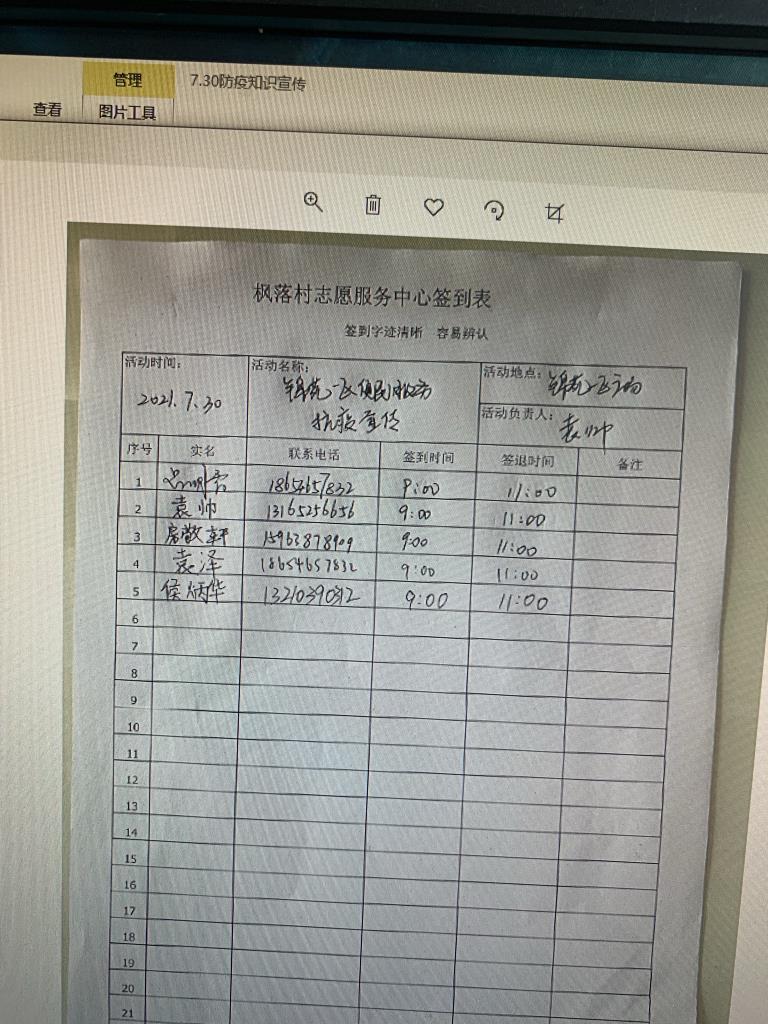 管理
7.30防疫知识宣传
查看
图片工具
枫落村志愿服务中心签到表
签到字迹清晰 容易辨认
活动时间: 2021.7.30
活动名称: 锦苑一区便民服务
抗疫宣传
活动地点: 锦苑一区
活动负责人: 袁帅
序号 实名 联系电话 签到时间 签退时间 备注
1 18654657832 9:00 11:00
2 袁帅 13165256656 9:00 11:00
3 房敬轩 15963878909 9:00 11:00
4 袁泽 18654657832 9:00 11:00
5 侯炳华 9:00 11:00
6
7
8
9
10
11
12
13
14
15
16
17
18
19
20
21